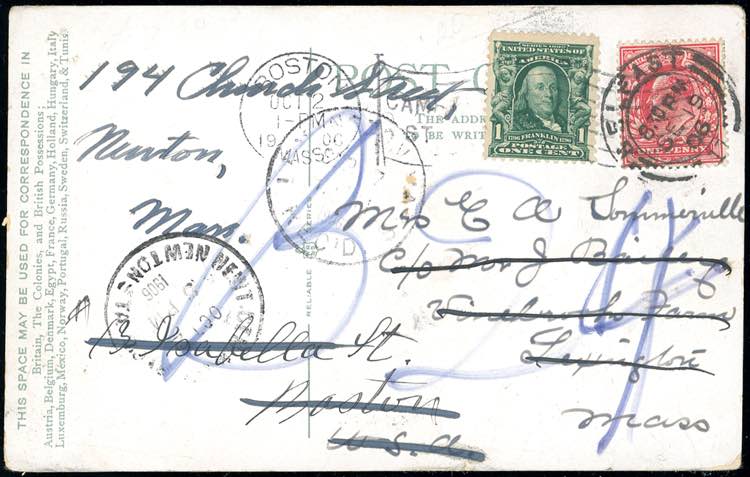 THIS SPACE MAY BE USED FOR CORRESPONDENCE IN
Britain, The Colonies, and British Possessions;
Austria, Belgium, Denmark, Egypt, France, Germany, Holland, Hungary, Italy
Luxemburg, Mexico, Norway, Portugal, Russia, Sweden, Switzerland, & Tunis
POST
THE ADDR
BE WRIT
194 Church Street
Newton,
Mass.
BOSTON
OCT 12
1-PM
19
MASS
SERIES 1902
UNITED STATES OF
AMERICA
1706 FRANKLIN 1790
1 POSTAGE 1
ONE CENT
BELFAST
ONE PENNY
Mrs E A Sommerville
c/o Mrs J
Farm
Lexington
Mass
RELIABLE
SERIES
NEWTON STA
OCT
1906
13 Isabella St.
Boston
U.S.A.